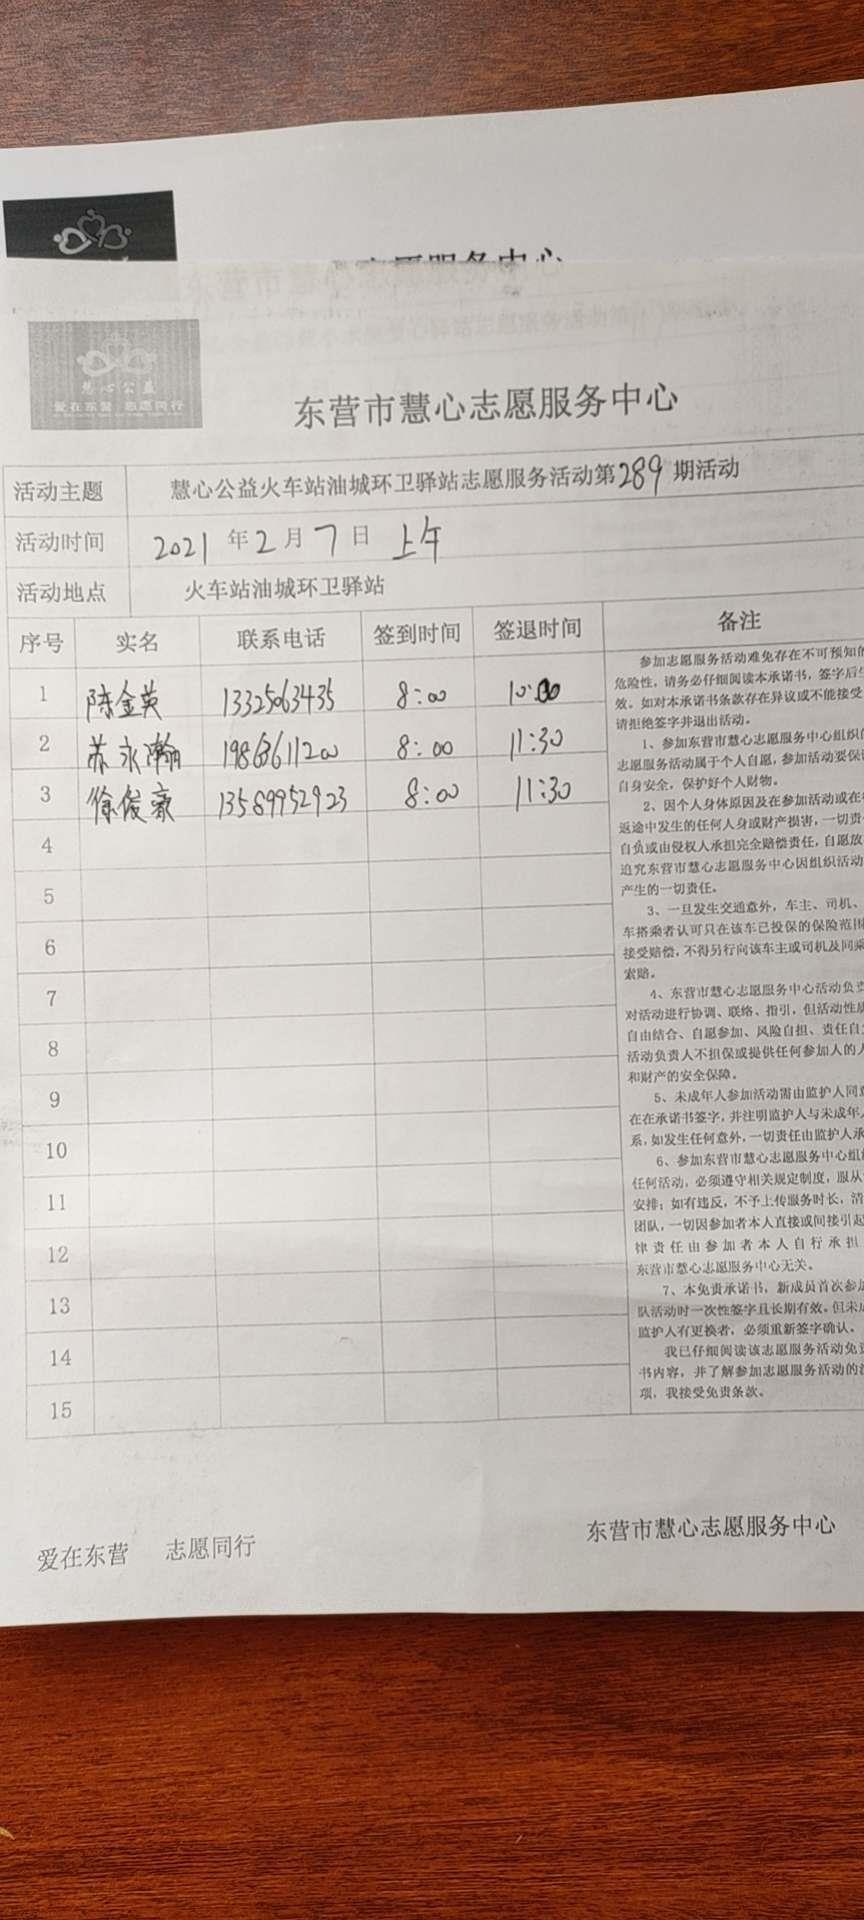 慧心公益
爱在东营 志愿同行
东营市慧心志愿服务中心
活动主题 慧心公益火车站油城环卫驿站志愿服务活动第289期活动
活动时间 2021年2月7日 上午
活动地点 火车站油城环卫驿站
序号 实名 联系电话 签到时间 签退时间 备注
1 陈金英 13325063435 8:00 10:00
2 苏永瀚 19863611200 8:00 11:30
3 徐俊豪 13589952923 8:00 11:30
4
5
6
7
8
9
10
11
12
13
14
15
参加志愿服务活动难免存在不可预知的
危险性，请务必仔细阅读本承诺书，签字后生
效。如对本承诺书条款存在异议或不能接受
请拒绝签字并退出活动。
1、参加东营市慧心志愿服务中心组织的
志愿服务活动属于个人自愿，参加活动要保
自身安全，保护好个人财物。
2、因个人身体原因及在参加活动或在
返途中发生的任何人身或财产损害，一切责
自负或由侵权人承担完全赔偿责任，自愿放
追究东营市慧心志愿服务中心因组织活动
产生的一切责任。
3、一旦发生交通意外，车主、司机、
车搭乘者认可只在该车已投保的保险范围
接受赔偿，不得另行向该车主或司机及同乘
索赔。
4、东营市慧心志愿服务中心活动负责
对活动进行协调、联络、指引，但活动性质
自由结合、自愿参加、风险自担、责任自
活动负责人不担保或提供任何参加人的人
和财产的安全保障。
5、未成年人参加活动需由监护人同意
在在承诺书签字，并注明监护人与未成年人
系，如发生任何意外，一切责任由监护人承
6、参加东营市慧心志愿服务中心组织
任何活动，必须遵守相关规定制度，服从
安排；如有违反，不予上传服务时长，清
团队，一切因参加者本人直接或间接引起
律责任由参加者本人自行承担
东营市慧心志愿服务中心无关。
7、本免责承诺书，新成员首次参加
队活动时一次性签字且长期有效。但未成
监护人有更换者，必须重新签字确认、
我已仔细阅读该志愿服务活动免责
书内容，并了解参加志愿服务活动的注
项，我接受免责条款。
爱在东营 志愿同行 东营市慧心志愿服务中心